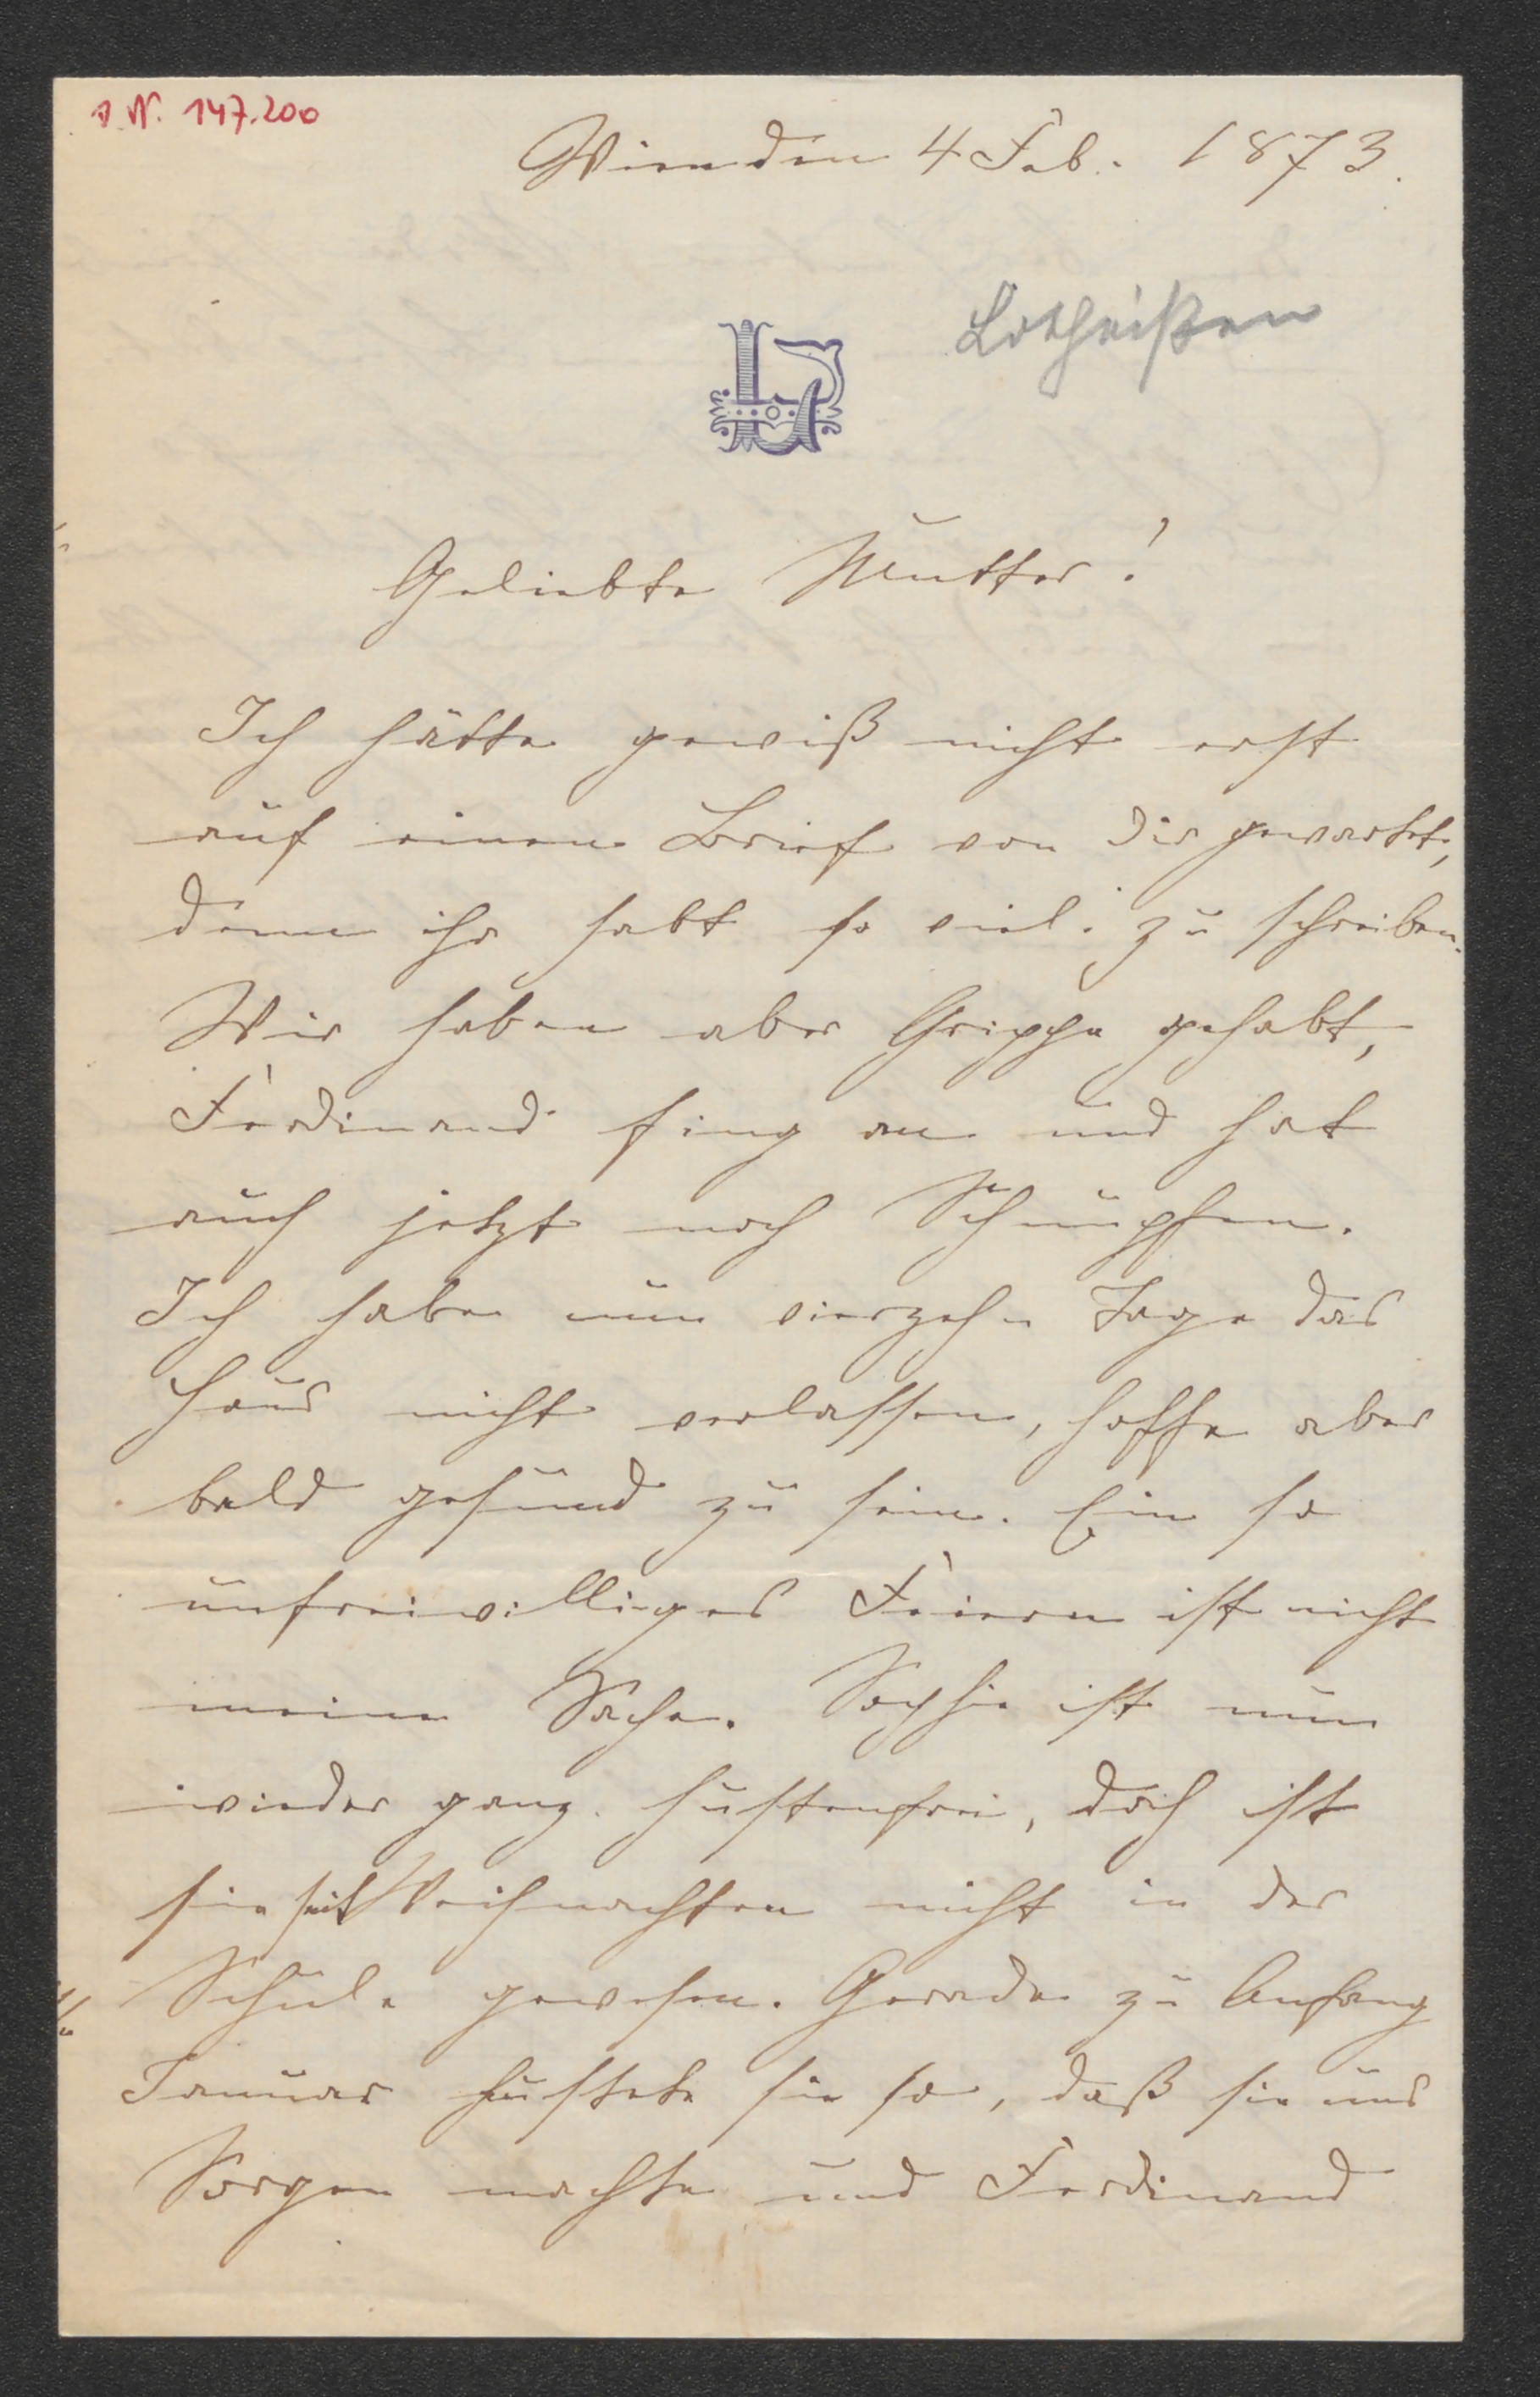 I. N. 147.200
Wien den 4 Feb. 1873.
Lotheißen
Geliebte Mutter!
Ich hätte gewiß nicht erst
auf einen Brief von Dir gewartet,
denn ihr habt so viel zu schreiben.
Wir haben aber Grippe gehabt,
Ferdinand fing an und hat
auch jetzt noch Schnupfen.
Ich habe nun vierzehn Tage das
Haus nicht verlassen, hoffe aber
bald gesund zu sein. Ein so
unfreiwilliges Feiern ist nicht
meine Sache. Sophie ist nun
wieder ganz hustenfrei, doch ist
sie seit Weihnachten nicht in der
Schule gewesen. Gerade zu Anfang
Januar hustete sie so, daß sie uns
Sorgen machte und Ferdinand